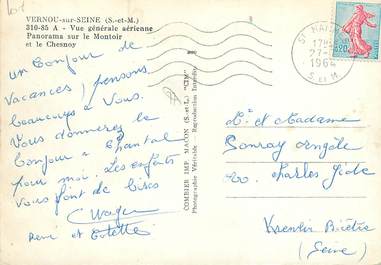 Lot
VERNOU-sur-SEINE (S.-et-M.)
310-85 A - Vue générale aérienne
Panorama sur le Montoir
et le Chesnoy
un bonjour de
vacances, pensons
beaucoup à Vous.
Vous donnerez le
bonjour à Chantal
pour moi. Les enfants
vous font de bises
René et
COMBIER IMP. MACON (S.-et-L.) "CIM"
Photographie Véritable - Reproduction Interdite
17H
27-
1964
S. et M.
0,20
Mr et Madame
Charles Gide
Kremlin Bicêtre
(Seine)